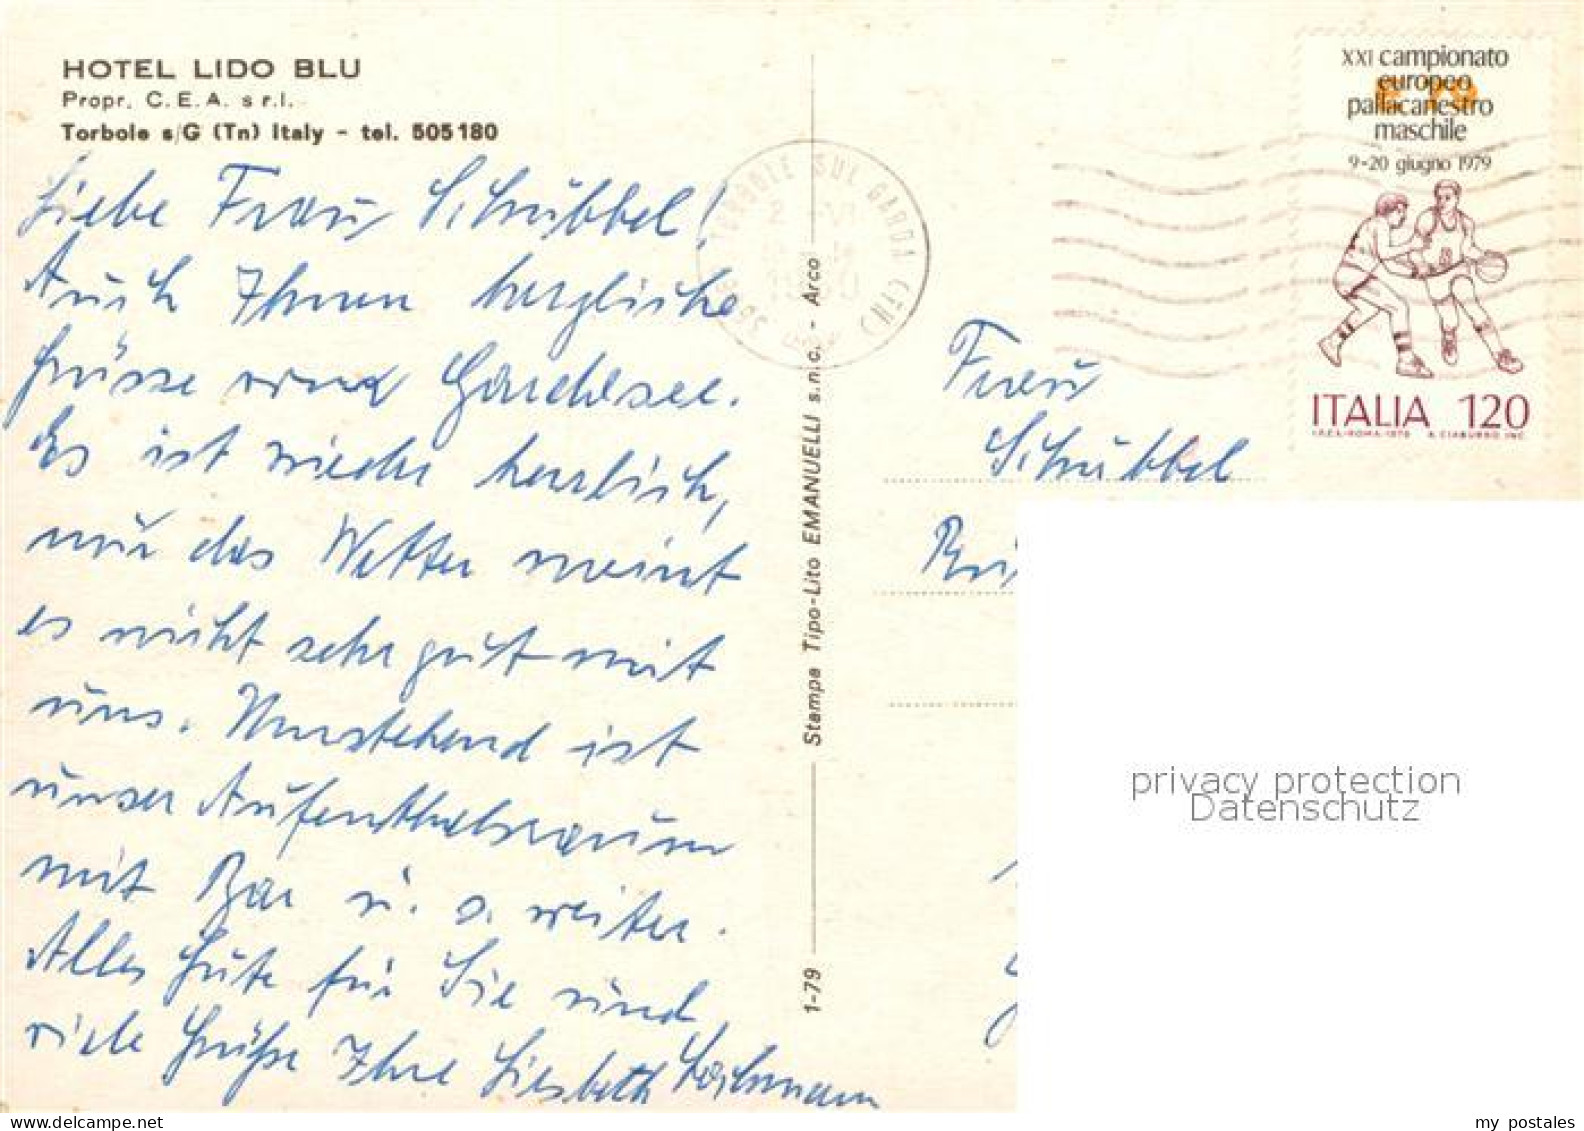 HOTEL LIDO BLU
Propr. C.E.A. s r.l.
Torbole s/G (Tn) Italy - tel. 505180
Liebe Frau Schübbel!
Auch Ihnen herzliche
Grüsse vom Gardasee.
Es ist wieder herrlich,
nur das Wetter meint
es nicht sehr gut mit
uns. Umstehend ist
unser Aufenthaltsraum
mit Bar u. s. weiter.
Alles Gute für Sie und
viele Grüße Ihre Liesbeth
Stampa Tipo-Lito EMANUELLI s.n.c. - Arco
1-79
TORBOLE SUL GARDA (TN)
XXI campionato
europeo
pallacanestro
maschile
9-20 giugno 1979
ITALIA 120
I.P.Z.S.-ROMA-1979 A. CIABURRO, INC.
Frau
Schübbel
privacy protection
Datenschutz
my postales